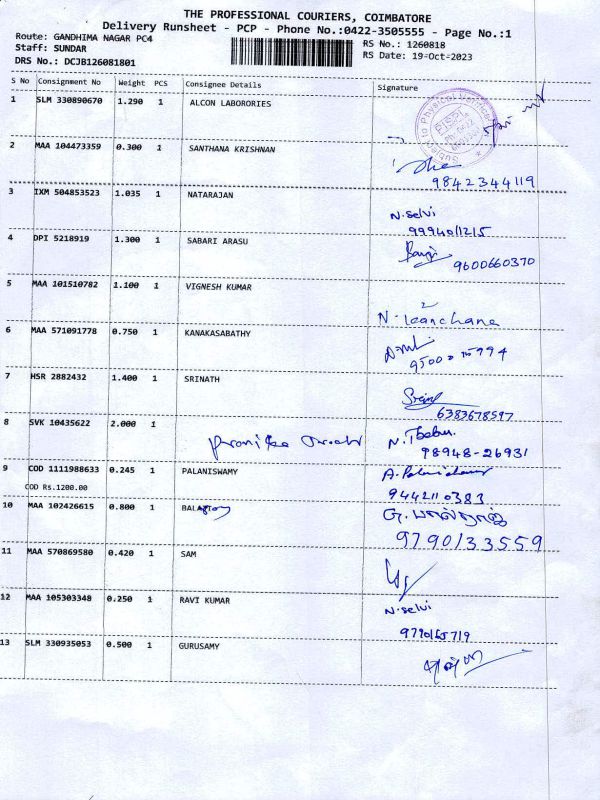 THE PROFESSIONAL COURIERS, COIMBATORE
Delivery Runsheet - PCP - Phone No.:0422-3505555 - Page No.:1
Route: GANDHIMA NAGAR PC4
RS No.: 1260818
Staff: SUNDAR
RS Date: 19-Oct-2023
DRS No.: DCJB126081801
S No Consignment No Weight PCS Consignee Details Signature
1 SLM 330890670 1.290 1 ALCON LABORORIES
2 MAA 104473359 0.300 1 SANTHANA KRISHNAN
9842344119
3 IXM 504853523 1.035 1 NATARAJAN
N. Selvi
9994011215
4 DPI 5218919 1.300 1 SABARI ARASU
9600660370
5 MAA 101510782 1.100 1 VIGNESH KUMAR
6 MAA 571091778 0.750 1 KANAKASABATHY
7 HSR 2882432 1.400 1 SRINATH
6383678597
8 SVK 10435622 2.000 1
98948-26931
9 COD 1111988633 0.245 1 PALANISWAMY
COD Rs.1200.00
9442110383
10 MAA 102426615 0.800 1
9790133559
11 MAA 570869580 0.420 1 SAM
12 MAA 105303348 0.250 1 RAVI KUMAR
N. Selvi
13 SLM 330935053 0.500 1 GURUSAMY